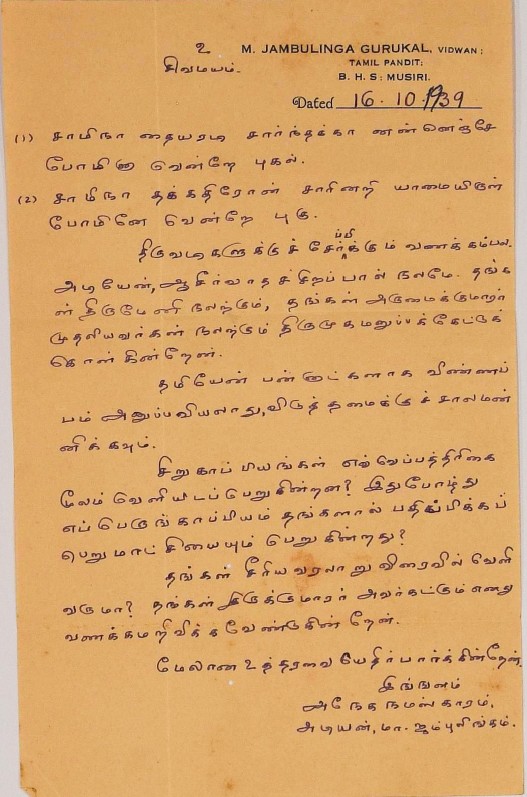 உ
சிவமயம்.
M. JAMBULINGA GURUKAL, VIDWAN;
TAMIL PANDIT;
B. H. S: MUSIRI.
Dated 16. 10. 1939
(1) சாமிநா தையரடி சார்ந்தக்கா னன்னெஞ்சே
போமிடி வென்றே புகல்.
(2) சாமிநா தக்கதிரோன் சாரினறி யாமையிருள்
போமினே வென்றே புகு.
திருவடிகளுக்குச் சேர்ப்பிக்கும் வணக்கம்பல.
அடியேன், ஆசிர்வாதச்சிறப்பால் நலமே. தங்க
ள் திருமேனி நலற்கும், தங்கள் அருமைக்குமாரர்
முதலியவர்கள் நலற்கும் திருமுகமறுப்பக்கேட்டுக்
கொள்கின்றேன்.
தமியேன் பன்னாட்களாக விண்ணப்
பம் அனுப்பவியலாது, விடுத்தமைக்குச் சாலமன்
னிக்கவும்.
சிறுகாப்பியங்கள் எவ்வெப்பத்திரிகை
மூலம் வெளியிடப்பெறுகின்றன? இதுபோழ்து
எப்பெருங்காப்பியம் தங்களால் பதிப்பிக்கப்
பெறுமாட்சியையும் பெறுகின்றது?
தங்கள் சீரியவரலாறு விரைவில் வெளி
வருமா? தங்கள் திருக்குமாரர் அவர்கட்கும் எனது
வணக்கமறிவிக்கவேண்டுகின்றேன்.
மேலான உத்தரவை யெதிர்பார்க்கின்றேன்.
இங்ஙனம்
அநேத நமஸ்காரம்,
அடியன், மா. ஜம்புலிங்கம்.